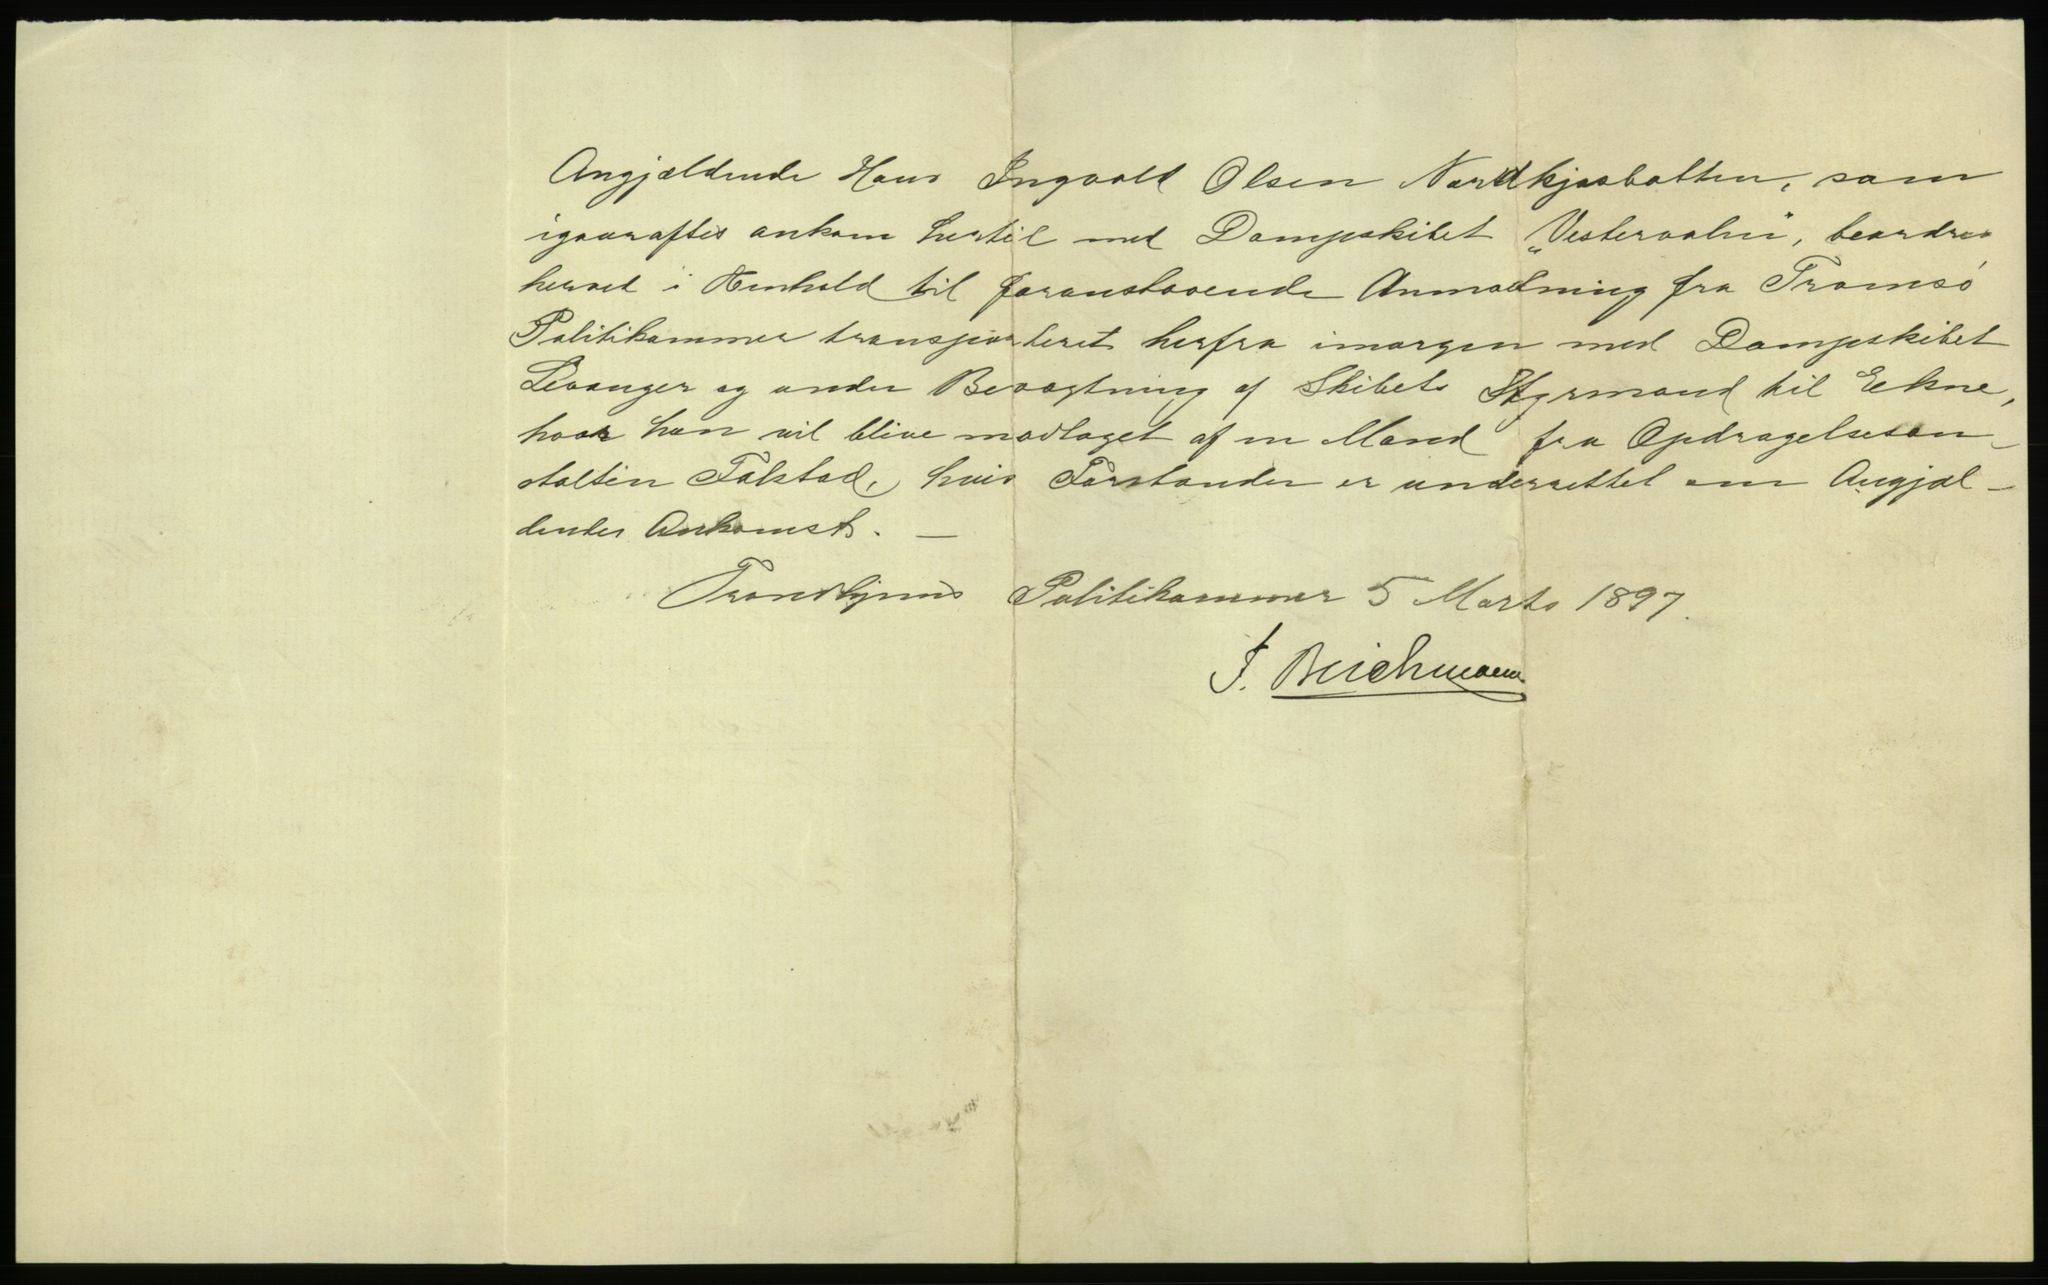 Angjældende Hans Ingvald Olsen Nordkjosbotten, som
igaaraftes ankom hertil med Dampskibet „Vesteraalen", beordres
herved i Henhold til foranstaaende Anmodning fra Tromsö
Politikammer transporteret herfra imorgen med Dampskibet
Levanger og under Bevogtning af Skibets Styrmand til Ekne,
hvor han vil blive modtaget af en Mand fra Opdragelsesan-
stalten Falstad, hvis Forstander er underrettet om Angjæl-
dendes Ankomst. —
Trondhjems Politikammer 5 Marts 1897.